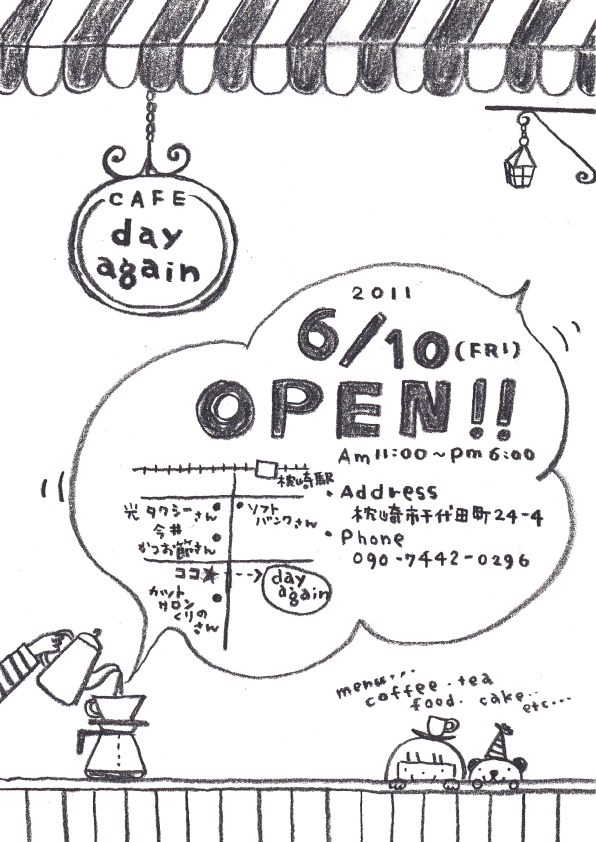 CAFE
day
again
2011
6/10(FRI)
OPEN!!
Am11:00~pm6:00
枕崎駅
・Address
枕崎市千代田町24-4
・Phone
090-7442-0296
元タクシーさん
・ソフト
バンクさん
今井
かつお節さん
ココ★--->
day
again
カット
サロン
くりの
さん
menu...
coffee.tea
food. cake..
etc...